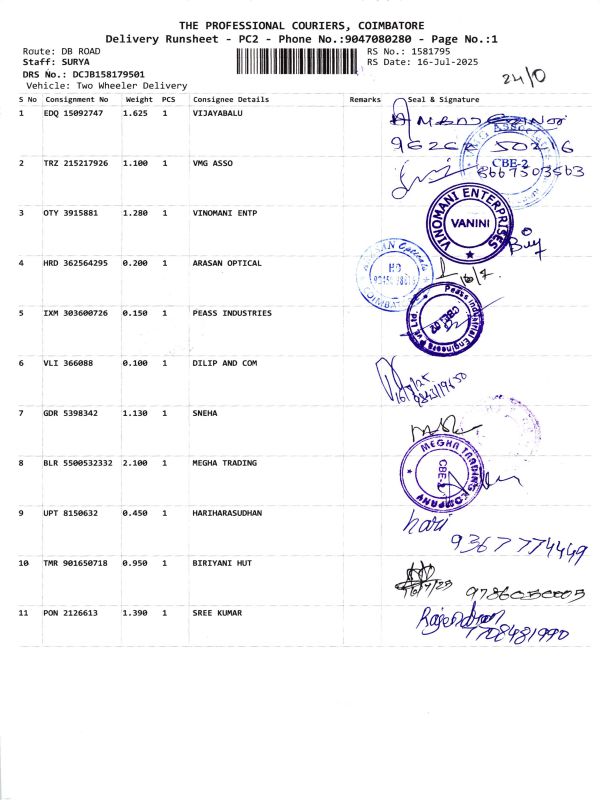 THE PROFESSIONAL COURIERS, COIMBATORE
Delivery Runsheet - PC2 - Phone No.:9047080280 - Page No.:1
Route: DB ROAD RS No.: 1581795
Staff: SURYA RS Date: 16-Jul-2025
DRS No.: DCJB158179501
Vehicle: Two Wheeler Delivery
24/0
S No Consignment No Weight PCS Consignee Details Remarks Seal & Signature
1 EDQ 15092747 1.625 1 VIJAYABALU
2 TRZ 215217926 1.100 1 VMG ASSO
CBE-2
8667303563
3 OTY 3915881 1.280 1 VINOMANI ENTP
VINOMANI ENTERPRISES
VANINI
4 HRD 362564295 0.200 1 ARASAN OPTICAL
ARASAN Opticals
HO
16/7.
5 IXM 303600726 0.150 1 PEASS INDUSTRIES
Peass Industrial Engineers Pvt Ltd.
6 VLI 366088 0.100 1 DILIP AND COM
16/7/25
7 GDR 5398342 1.130 1 SNEHA
8 BLR 5500532332 2.100 1 MEGHA TRADING
MEGHA TRADING COMPANY
CBE-2
9 UPT 8150632 0.450 1 HARIHARASUDHAN
hari
9367774449
10 TMR 901650718 0.950 1 BIRIYANI HUT
16/7/25
11 PON 2126613 1.390 1 SREE KUMAR
Rajendran
7708481990